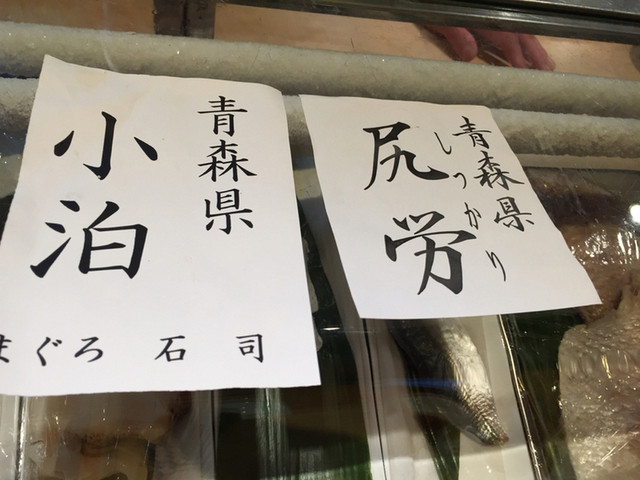 青森県
小泊
まぐろ 石司
青森県
しつかり
尻労